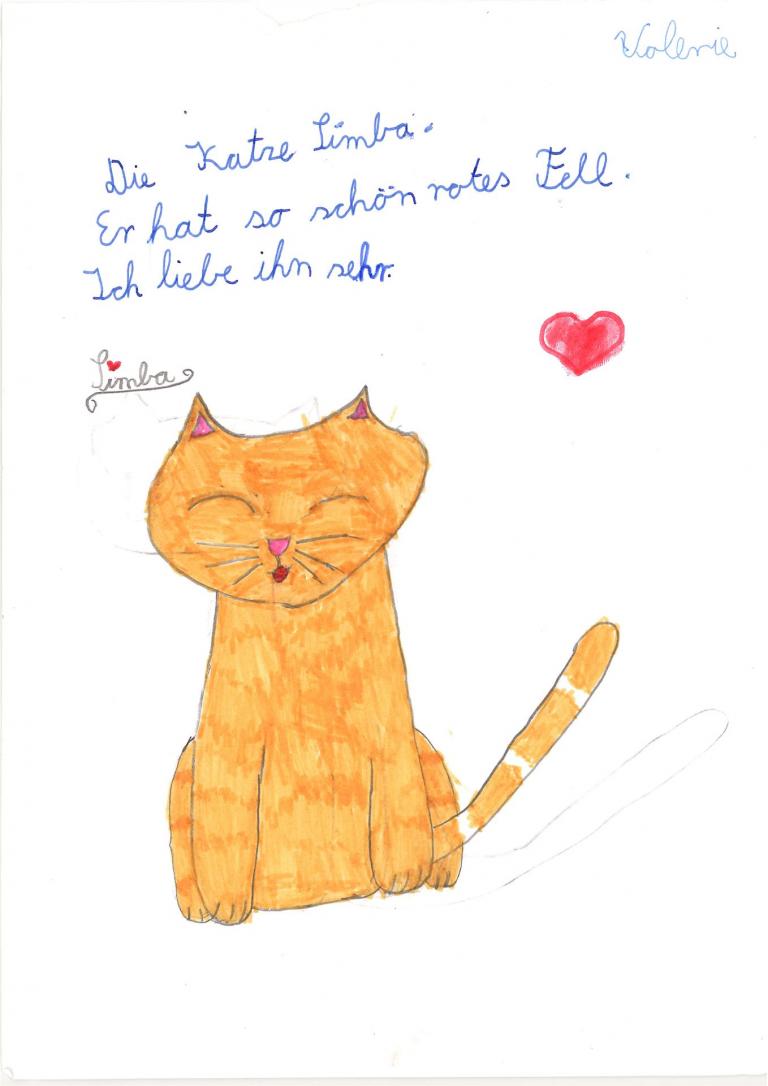 Valerie
Die Katze Simba.
Er hat so schön rotes Fell.
Ich liebe ihn sehr.
Simba